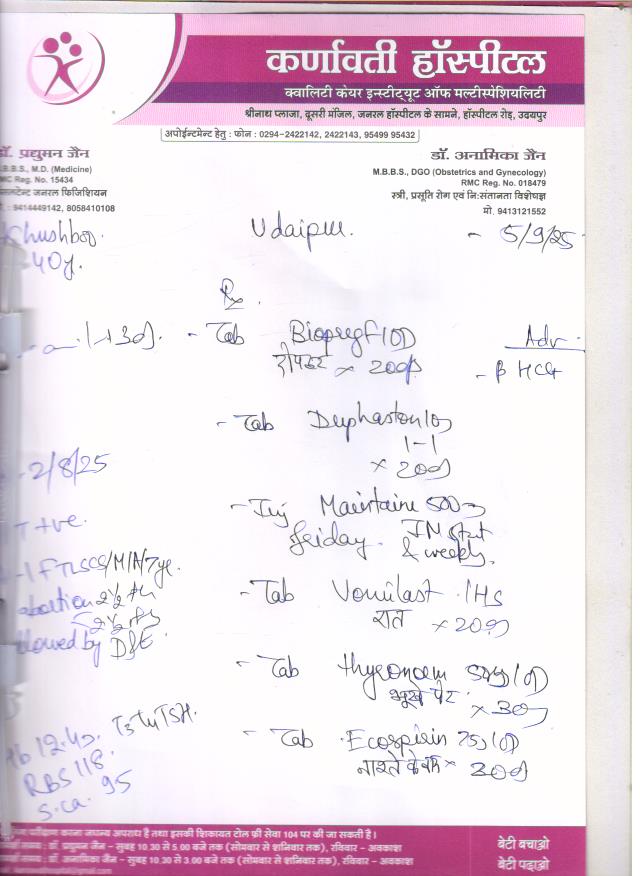 कर्णावती हॉस्पीटल
क्वालिटी केयर इन्स्टीट्यूट ऑफ मल्टीस्पेशियलिटी
श्रीनाथ प्लाजा, दूसरी मंजिल, जनरल हॉस्पीटल के सामने, हॉस्पीटल रोड़, उदयपुर
अपोईन्टमेन्ट हेतु : फोन : 0294-2422142, 2422143, 95499 95432
डॉ. प्रद्युमन जैन
M.B.B.S., M.D. (Medicine)
RMC Reg. No. 15434
जनरल फिजिशियन
9414449142, 8058410108
डॉ. अनामिका जैन
M.B.B.S., DGO (Obstetrics and Gynecology)
RMC Reg. No. 018479
स्त्री, प्रसूति रोग एवं नि:संतानता विशेषज्ञ
मो. 9413121552
Khushboo Udaipur. - 5/9/25
40y.
Rx
- Tab OD
दोपहर × 20
Adv
- β HCG
- Tab Duphaston 10
1-1
× 20
- 2/8/25
- Inj Maintaine 500
Friday. IM stat
& weekly.
T +ve.
abortion 2½
2½
followed by D&E
- Tab Vomilast 1HS
रात × 20
- Tab OD
भूखे पेट × 30
Hb 12.4 T3 T4 TSH.
RBS 118.
S. ca. 95
- Tab Ecosprin 75 OD
नाश्ते के बाद × 30
परीक्षण करना जघन्य अपराध है तथा इसकी शिकायत टोल फ्री सेवा 104 पर की जा सकती है।
समय : डॉ. प्रद्युमन जैन - सुबह 10.30 से 5.00 बजे तक (सोमवार से शनिवार तक), रविवार - अवकाश
समय : डॉ. अनामिका जैन - सुबह 10.30 से 3.00 बजे तक (सोमवार से शनिवार तक), रविवार - अवकाश
बेटी बचाओ
बेटी पढ़ाओ